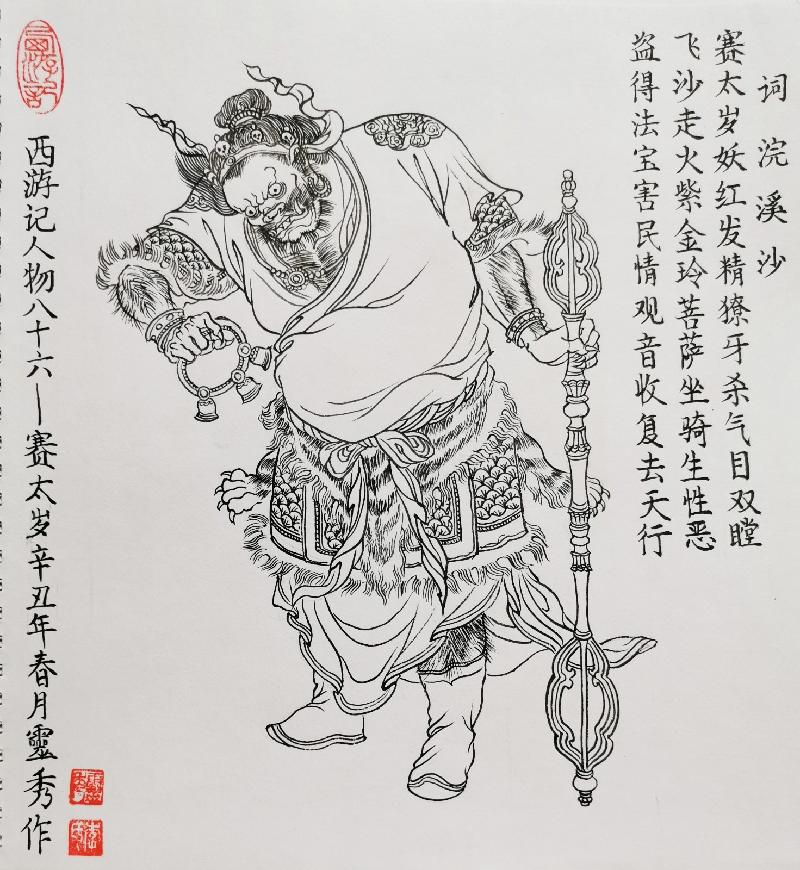 词浣溪沙
赛太岁妖红发精獠牙杀气目双瞠
飞沙走火紫金玲菩萨坐骑生性恶
盗得法宝害民情观音收复去天行
西游记
西游记人物八十六—赛太岁辛丑年春月靈秀作